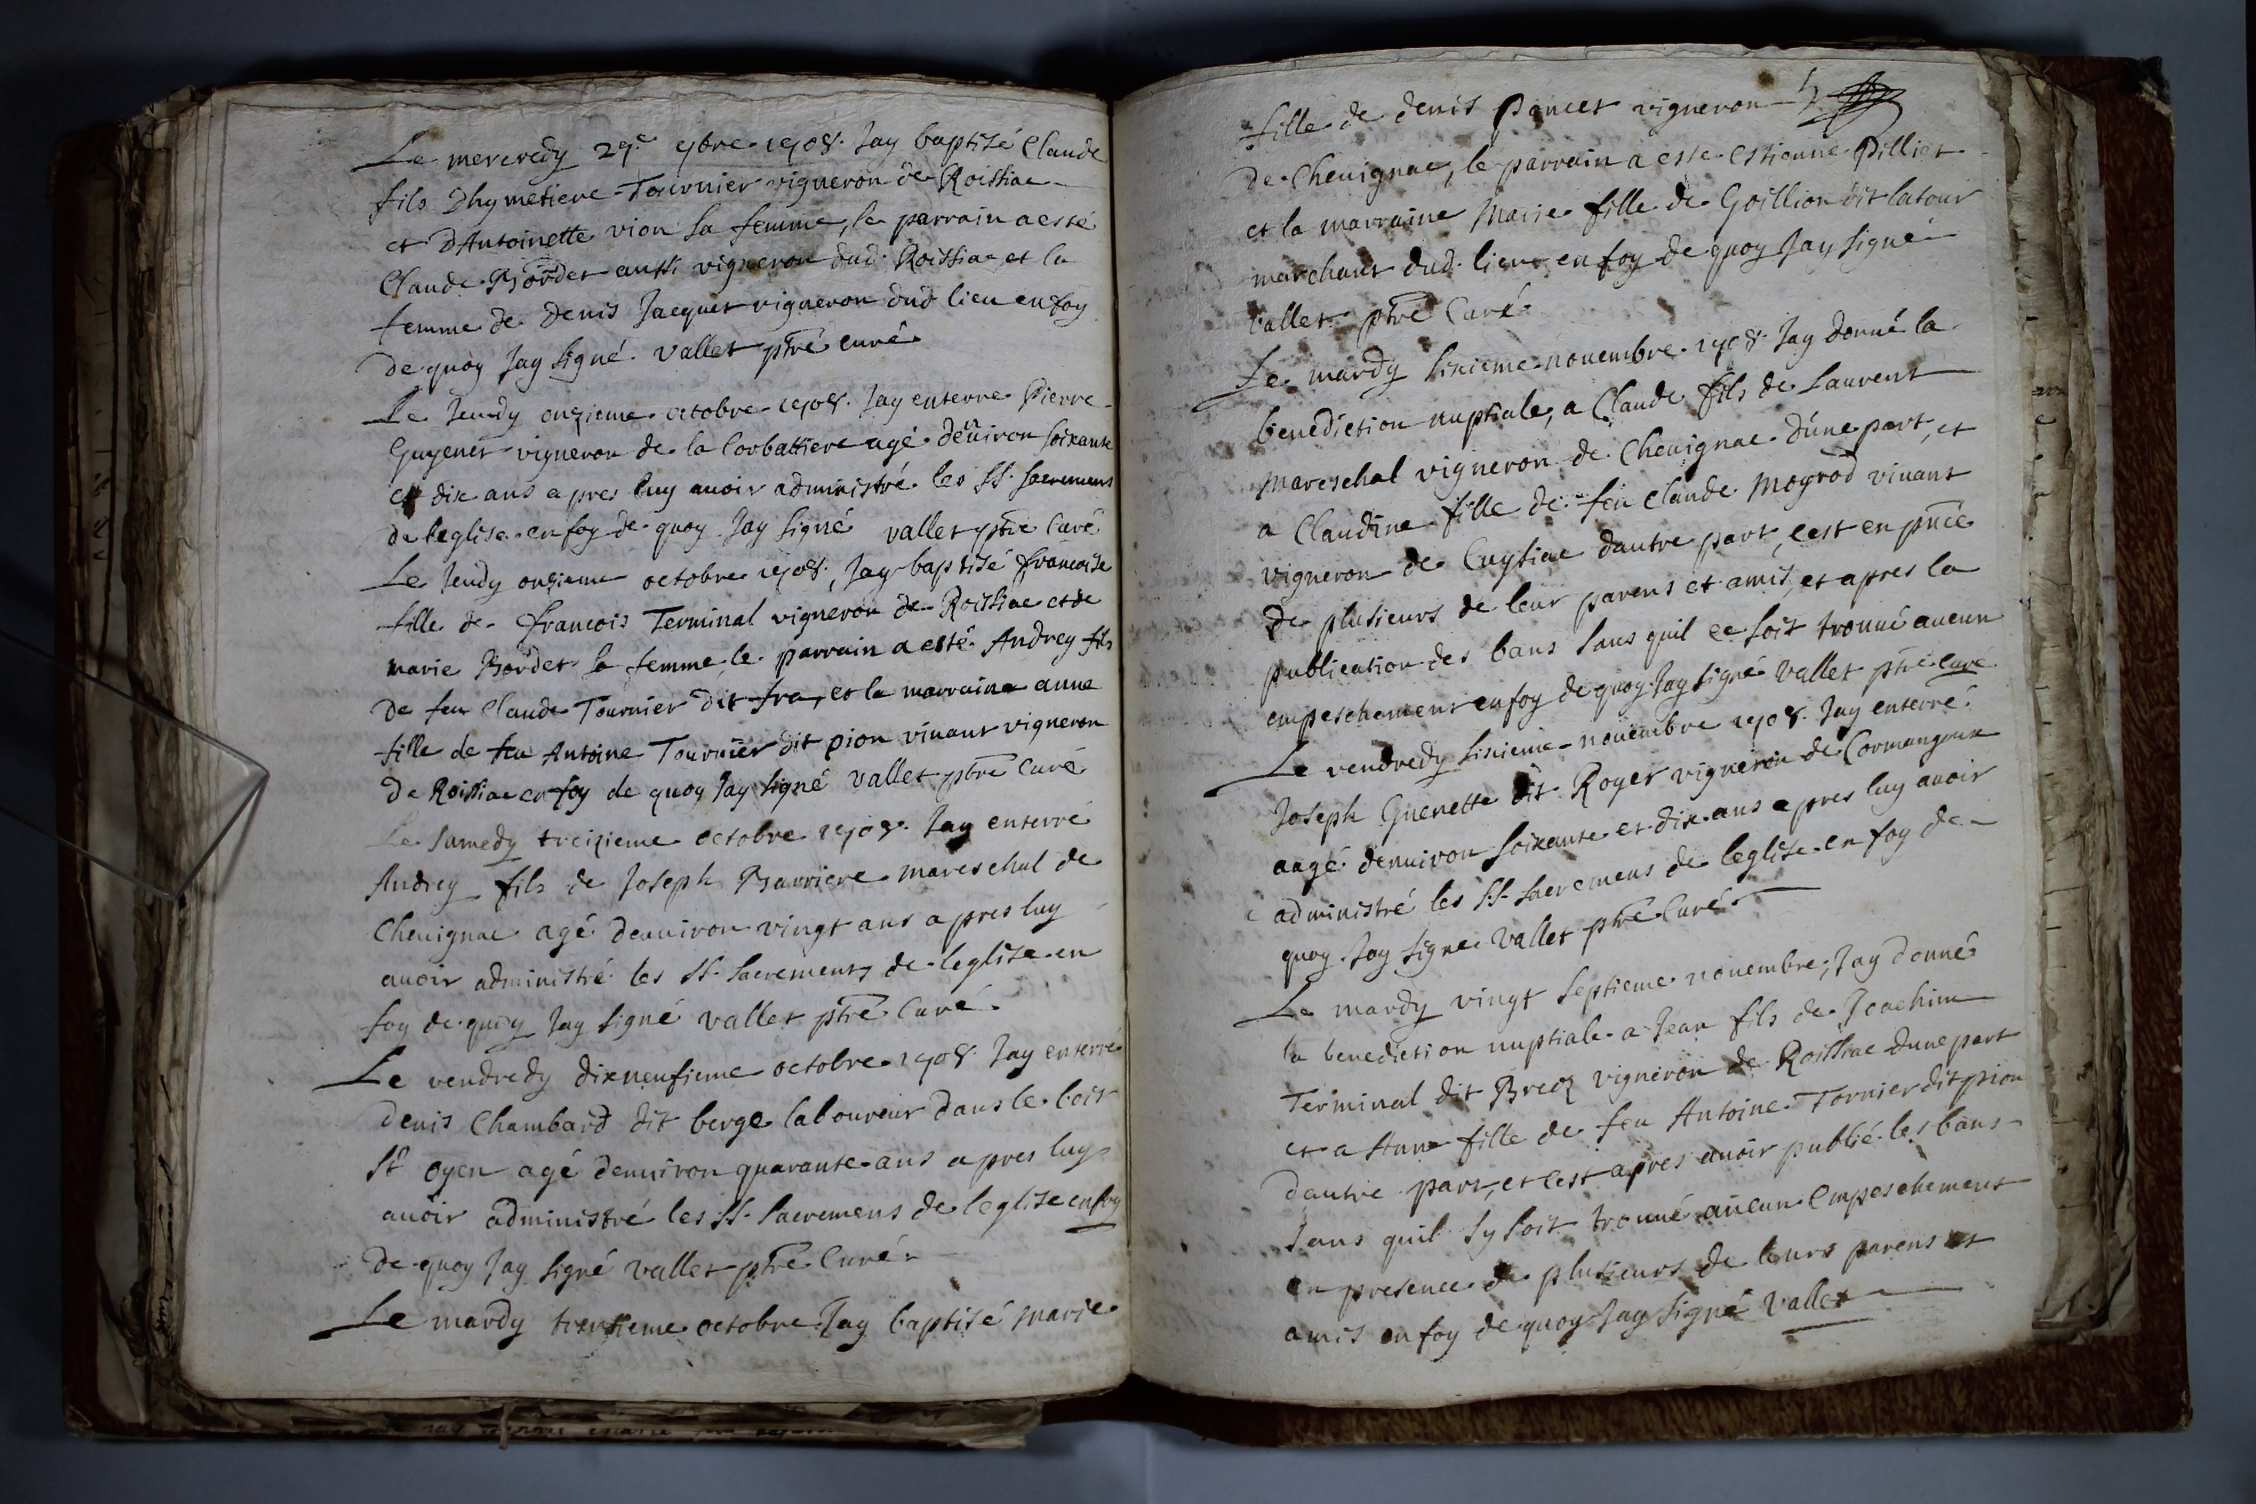 Le mercredy 29e 7bre 1708. Jay baptisé Claude
fils Dhymetiere Tournier vigneron de Roissiac
et DAntoinette vion sa femme, le parrain a esté
Claude Bordet aussi vigneron dud. Roissiac et la
femme de denis Jacquet vigneron dud lieu en foy
de quoy Jay signé. vallet ptre curé
Le Jeudy onzieme octobre 1708. Jay enterre Pierre
Guyenet vigneron de la Corbattiere agé denuiron soixante
et dix ans apres luy auoir administré les SS. sacremens
de leglise en foy de quoy Jay signé vallet ptre Curé
Le Jeudy onzieme octobre 1708. Jay baptisé francoise
fille de francois Terminal vigneron de Roissiac et de
marie Bordet sa femme, le parrain a esté Andrey fils
de feu Claude Tournier dit fra, et la marraine anne
fille de feu Antoine Tournier dit pion viuant vigneron
de Roissiac en foy de quoy Jay signé vallet ptre Curé
Le samedy treizieme octobre 1708. Jay enterré
Andrey fils de Joseph Barriere mareschal de
Cheuignac agé denuiron vingt ans apres luy
auoir administré les SS. sacrements de leglise en
foy de quoy Jay signé vallet ptre Curé
Le vendredy dixneufieme octobre 1708. Jay enterré
denis Chambard dit berge laboureur dans le bois
St oyen agé denuiron quarante ans apres luy
auoir administré les SS. sacremens de leglise en foy
de quoy Jay signé vallet ptre Curé
Le mardy trentieme octobre Jay baptisé marie
fille de denis Poncet vigneron
de Cheuignac, le parrain a este estienne Pilliot
et la marraine Marie fille de Goillion dit latour
marchant dud. lieu en foy de quoy Jay signé
vallet ptre Curé
Le mardy sixieme nouembre 1708. Jay donné la
benediction nuptiale, a Claude fils de Laurent
Mareschal vigneron de Cheuignac dune part, et
a Claudine fille de feu Claude Mogrod viuant
vigneron de Cuysiac dautre part, cest en pnce
de plusieurs de leur parens et amis, et apres la
publication des bans sans quil ce soit trouué aucun
empeschement en foy de quoy Jay signé vallet ptre Curé
Le vendredy sixieme nouembre 1708. Jay enterré
Joseph Guenette dit Royer vigneron de Cormangoux
aagé denuiron soixante et dix ans apres luy auoir
administré les SS. sacremens de leglise en foy de
quoy Jay signe vallet ptre Curé
Le mardy vingt septieme nouembre, Jay donné
la benediction nuptiale a Jean fils de Joachim
Terminal dit Brecq vigneron de Roissiac dune part
et a Anne fille de feu Antoine Tornier dit pion
dautre part, et cest apres auoir publié les bans
sans quil sy soit trouué aucun empeschement
en presence de plusieurs de leurs parens et
amis en foy de quoy Jay signé Vallet